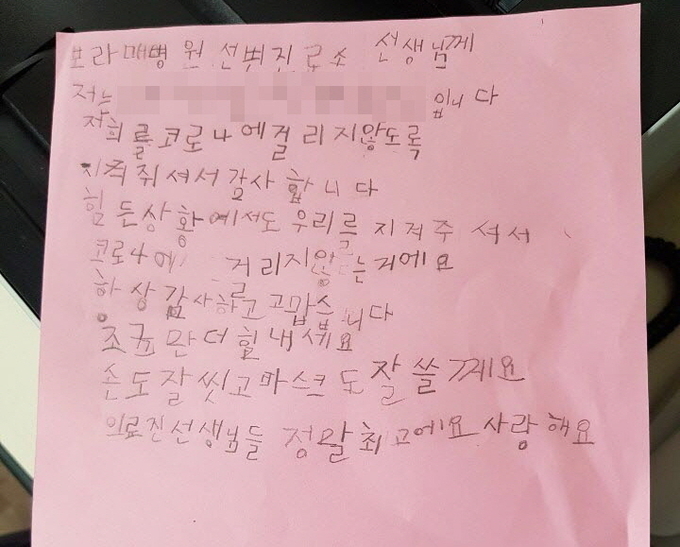 보라매병원 선벼진료소 선생님께
저는 입니다
저희를 코로나에걸리지않도록
지켜줘셔서 감사합니다
힘든상황에서도 우리를 지켜주셔서
코로나에 거리지않는거에요
항상감사하고 고맙습니다
조금만더힘내세요
손도잘씻고마스크도잘쓸께요
의료진선생님들 정말최고에요사랑해요